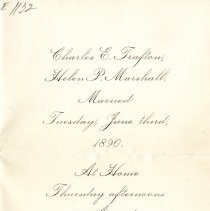 E 1132
Charles E. Trafton,
Helen P. Marshall,
Married
Tuesday, June third,
1890.
At Home
Thursday afternoons